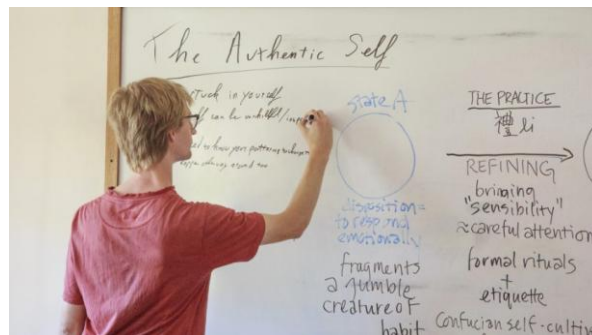 The Authentic Self
stuck in yourself
can be
to have your patterns
state A
disposition =
to respond
emotionally
fragments
a jumble
creature of
habit
THE PRACTICE
禮 li
REFINING
bringing
"sensibility"
≈ careful attention
formal rituals
+
etiquette
Confucian self-cultiv